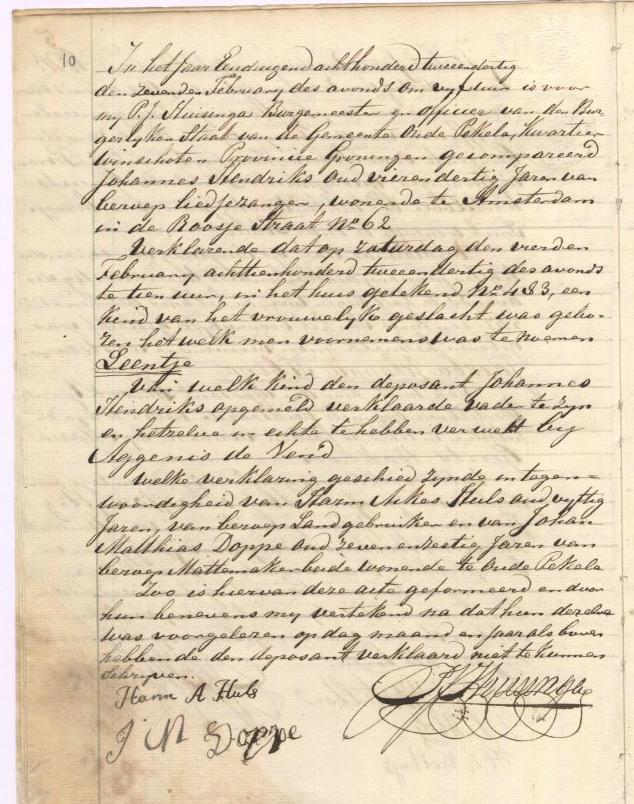 10
In het Jaar Eenduizend achthonderd tweeendertig
den zevenden February des avonds om vyf uur is voor
my P. J. Huisinga Burgemeester en officier van den Bur-
gerlyken Staat van de Gemeente Oude Pekela, Kwartier
winschoten Provincie Groningen gecompareerd
Johannes Hendriks oud vierendertig Jaren van
beroep liedjezanger, wonende te Amsterdam
in de Roosje Straat No 62
Verklarende dat op Zaturdag den vierden
February achttienhonderd tweeendertig des avonds
te tien uur, in het huis getekend No 483, een
kind van het vrouwelyk geslacht was gebo-
ren het welk men voornemens was te noemen
Leentje
Van welk kind den deposant Johannes
Hendriks opgemeld verklaarde vader te zyn
en hetzelve in echte te hebben verwekt by
Aggenis de Vend
welke verklaring geschied zynde in tegen=
woordigheid van Harm Aikes Huls oud vyftig
Jaren, van beroep Landgebruiker en van Johan
Matthias Doppe oud zevenenzestig Jaren van
beroep Mattemaker beide wonende te Oude Pekela
Zoo is hiervan deze acte geformeerd en door
hun benevens my vertekend na dat hun dezelve
was voorgelezen op dag maand en Jaar als boven
hebbende den deposant verklaard niet te kunnen
Schryven.
Harm A Huls
P J Huisinga
J M Doppe